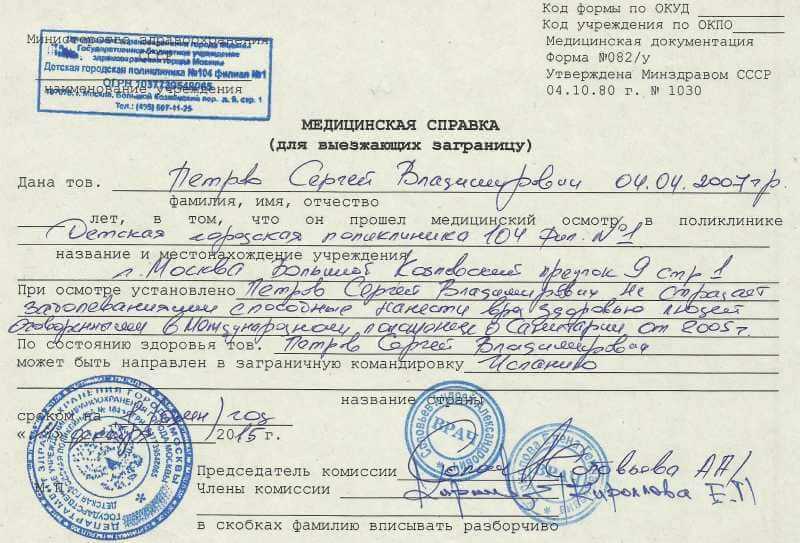 Код формы по ОКУД
Код учреждения по ОКПО
Министерство здравоохранения
Медицинская документация
Форма №082/у
Утверждена Минздравом СССР
04.10.80 г. № 1030
Государственное бюджетное учреждение
здравоохранения города Москвы
Детская городская поликлиника №104 филиал №1
наименование учреждения
г. Москва, Большой Козловский пер. д. 9, стр. 1
Тел.: (495) 607-11-25
МЕДИЦИНСКАЯ СПРАВКА
(для выезжающих заграницу)
Дана тов. Петров Сергей Владимирович 04.04.2007 г.р.
фамилия, имя, отчество
лет, в том, что он прошел медицинский осмотр в поликлинике
Детская городская поликлиника 104 фил. №1
название и местонахождение учреждения
г. Москва Большой Козловский 9 стр 1
При осмотре установлено Петров Сергей Владимирович не страдает
заболеваниями способные нанести вред здоровью людей
в Международном от 2005 г.
По состоянию здоровья тов. Петров Сергей Владимирович
может быть направлен в заграничную командировку Испанию
название страны
сроком на 1 (один) год
2015 г.
ВРАЧ
ВРАЧ
Председатель комиссии Соловьева АА/
М.П.
Члены комиссии Кириллова Е.П
в скобках фамилию вписывать разборчиво